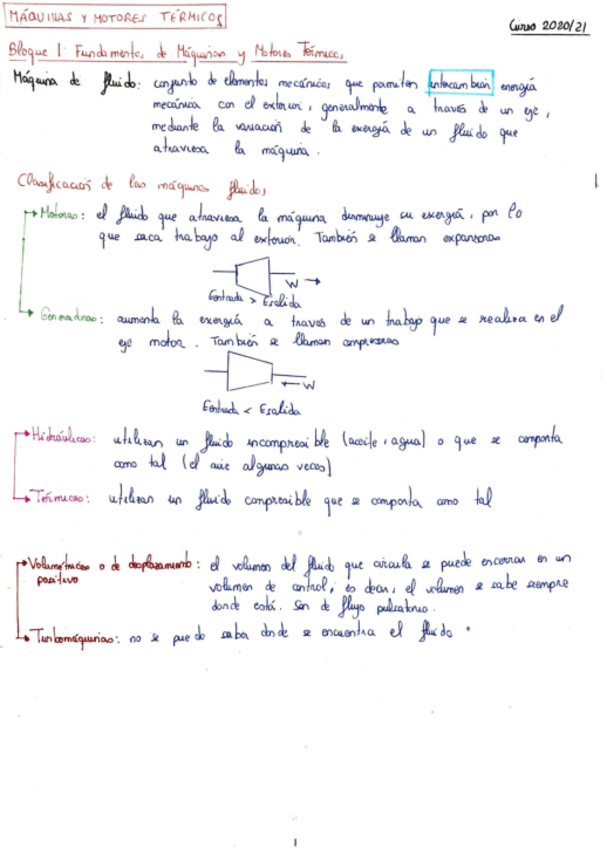 MÁQUINAS Y MOTORES TÉRMICOS
Curso 2020/21
Bloque 1: Fundamentos de Máquinas y Motores Térmicos
Máquina de fluido: conjunto de elementos mecánicos que permiten intercambiar energía
mecánica con el exterior, generalmente a través de un eje,
mediante la variación de la energía de un fluido que
atraviesa la máquina.
Clasificación de las máquinas fluidos
Motoras: el fluido que atraviesa la máquina disminuye su energía, por lo
que saca trabajo al exterior. También se llaman expansoras
W
Eentrada > Esalida
Generadoras: aumenta la energía a través de un trabajo que se realiza en el
eje motor. También se llaman compresoras
W
Eentrada < Esalida
Hidráulicas: utilizan un fluido incompresible (aceite, agua) o que se comporta
como tal (el aire algunas veces)
Térmicas: utilizan un fluido compresible que se comporta como tal
Volumétricas o de desplazamiento: el volumen del fluido que circula se puede encerrar en un
positivo
volumen de control, es decir, el volumen se sabe siempre
donde está. Son de flujo pulsatorio.
Turbomáquinas: no se puede saber donde se encuentra el fluido.
1